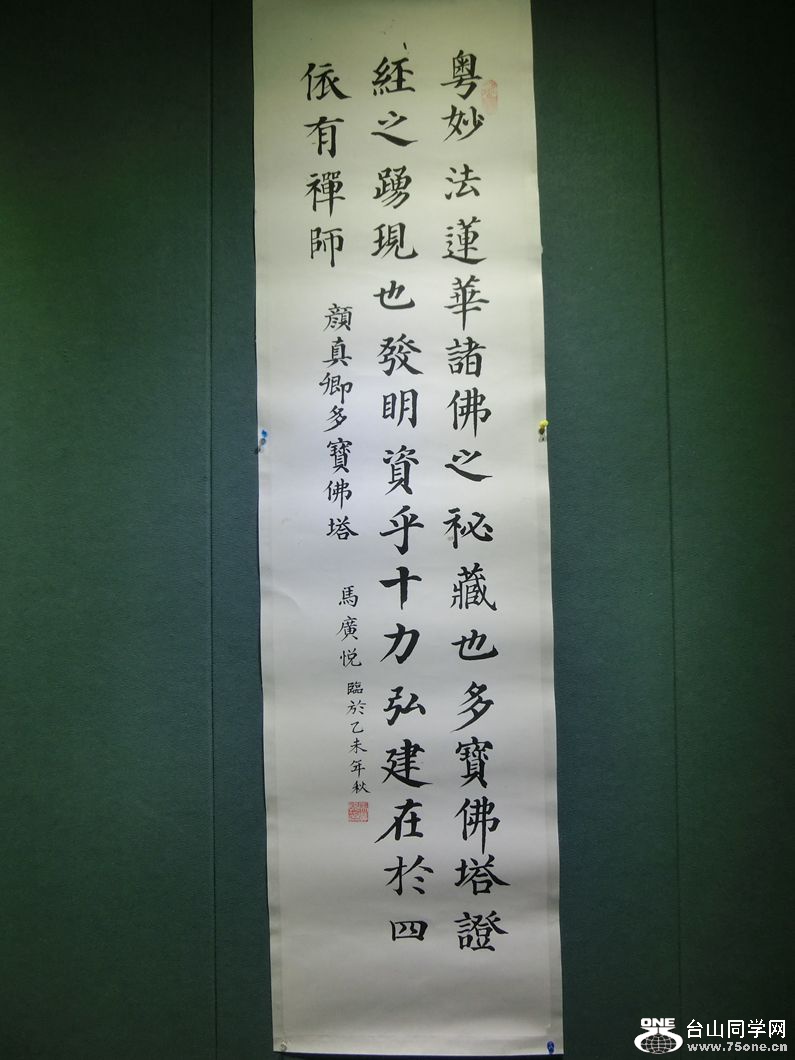 粵妙法蓮華諸佛之祕藏也多寶佛塔證
經之踴現也發明資乎十力弘建在於四
依有禪師
顏真卿多寶佛塔
馬廣悅臨於乙未年秋
ONE
台山同学网
www.75one.cn